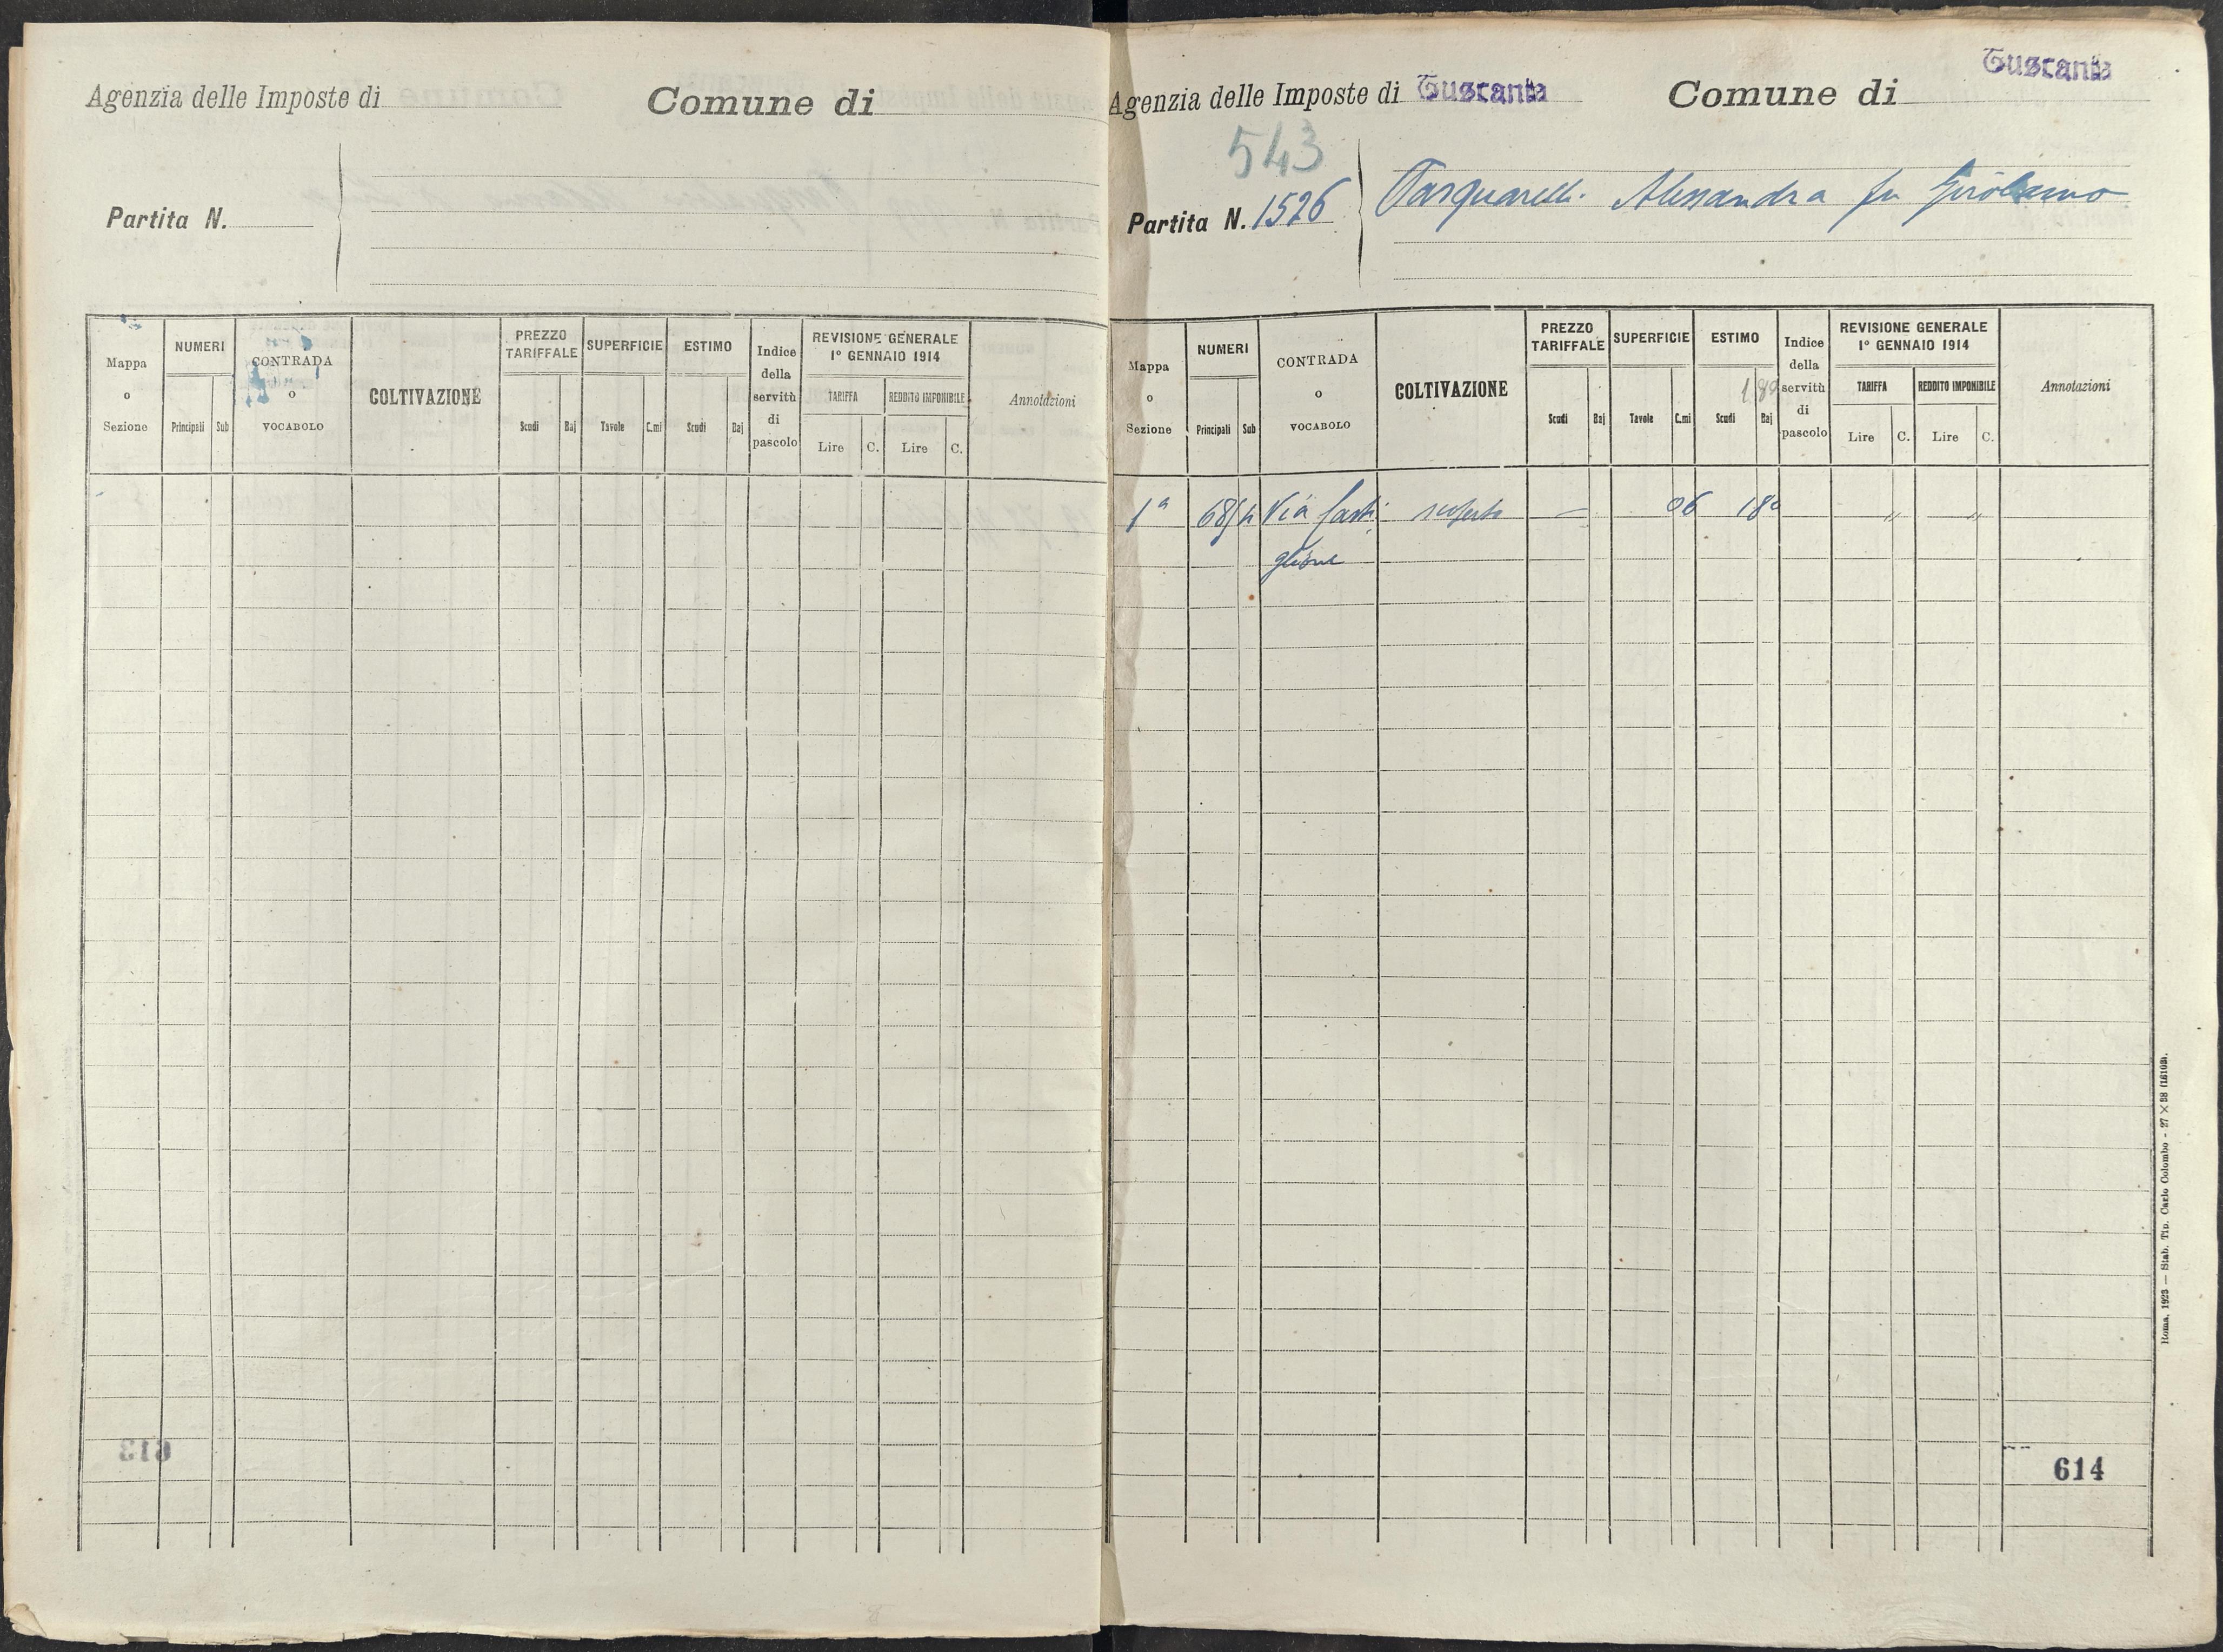 Agenzia delle Imposte di
Comune di
Partita N.
Mappa o Sezione
NUMERI
Principali Sub
CONTRADA o VOCABOLO
COLTIVAZIONE
PREZZO TARIFFALE
Scudi Baj
SUPERFICIE
Tavole C.mi
ESTIMO
Scudi Baj
Indice della servitù di pascolo
REVISIONE GENERALE
1° GENNAIO 1914
TARIFFA
Lire C.
REDDITO IMPONIBILE
Lire C.
Annotazioni
613
Agenzia delle Imposte di Tuscania
Comune di Tuscania
543
Partita N. 1526
Pasquarelli Alessandra fu Girolamo
Mappa o Sezione
NUMERI
Principali Sub
CONTRADA o VOCABOLO
COLTIVAZIONE
PREZZO TARIFFALE
Scudi Baj
SUPERFICIE
Tavole C.mi
ESTIMO
1,80
Scudi Baj
Indice della servitù di pascolo
REVISIONE GENERALE
1° GENNAIO 1914
TARIFFA
Lire C.
REDDITO IMPONIBILE
Lire C.
Annotazioni
1ª Via Casti — 06 180 " "
glione
614
Roma, 1923 — Stab. Tip. Carlo Colombo - 27 × 38